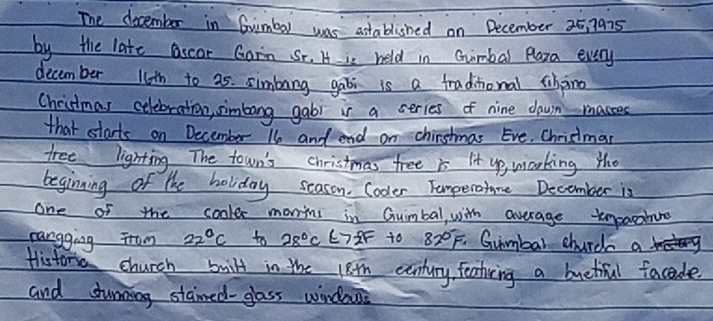 The december in Guimbal was astablished on December 25, 1975
by the late Oscar Garin Sr. It is held in Guimbal Plaza every
december 16th to 25. simbang gabi is a traditional filipino
Christmas celebration, simbang gabi is a series of nine dawn masses
that starts on December 16 and end on chirstmas Eve. Christmas
tree lighting The town's christmas tree is lit up, marking the
beginning of the holiday season. Cooler Temperature December is
one of the cooler months in Guimbal, with average temperature
rangging from 22°C to 28°C (72°F to 82°F. Guimbal church a
Historic church built in the 18th century, featuring a buetiful facade
and stunning stained-glass windows